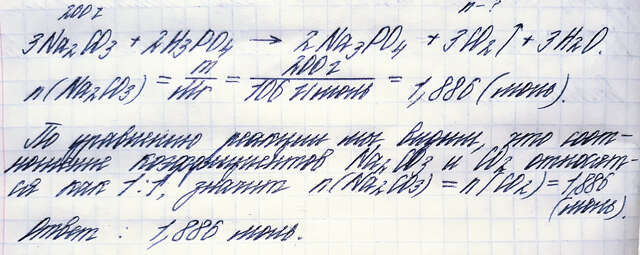 200г n-?
3Na2CO3 + 2H3PO4 → 2Na3PO4 + 3CO2↑ + 3H2O.
n(Na2CO3) = m/Mr = 200г/106 г/моль = 1,886 (моль).
По уравнению реакции мы видим, что соот-
ношение коэффициентов Na2CO3 и CO2 относят-
ся как 1:1, значит n(Na2CO3) = n(CO2) = 1,886
(моль).
Ответ : 1,886 моль.